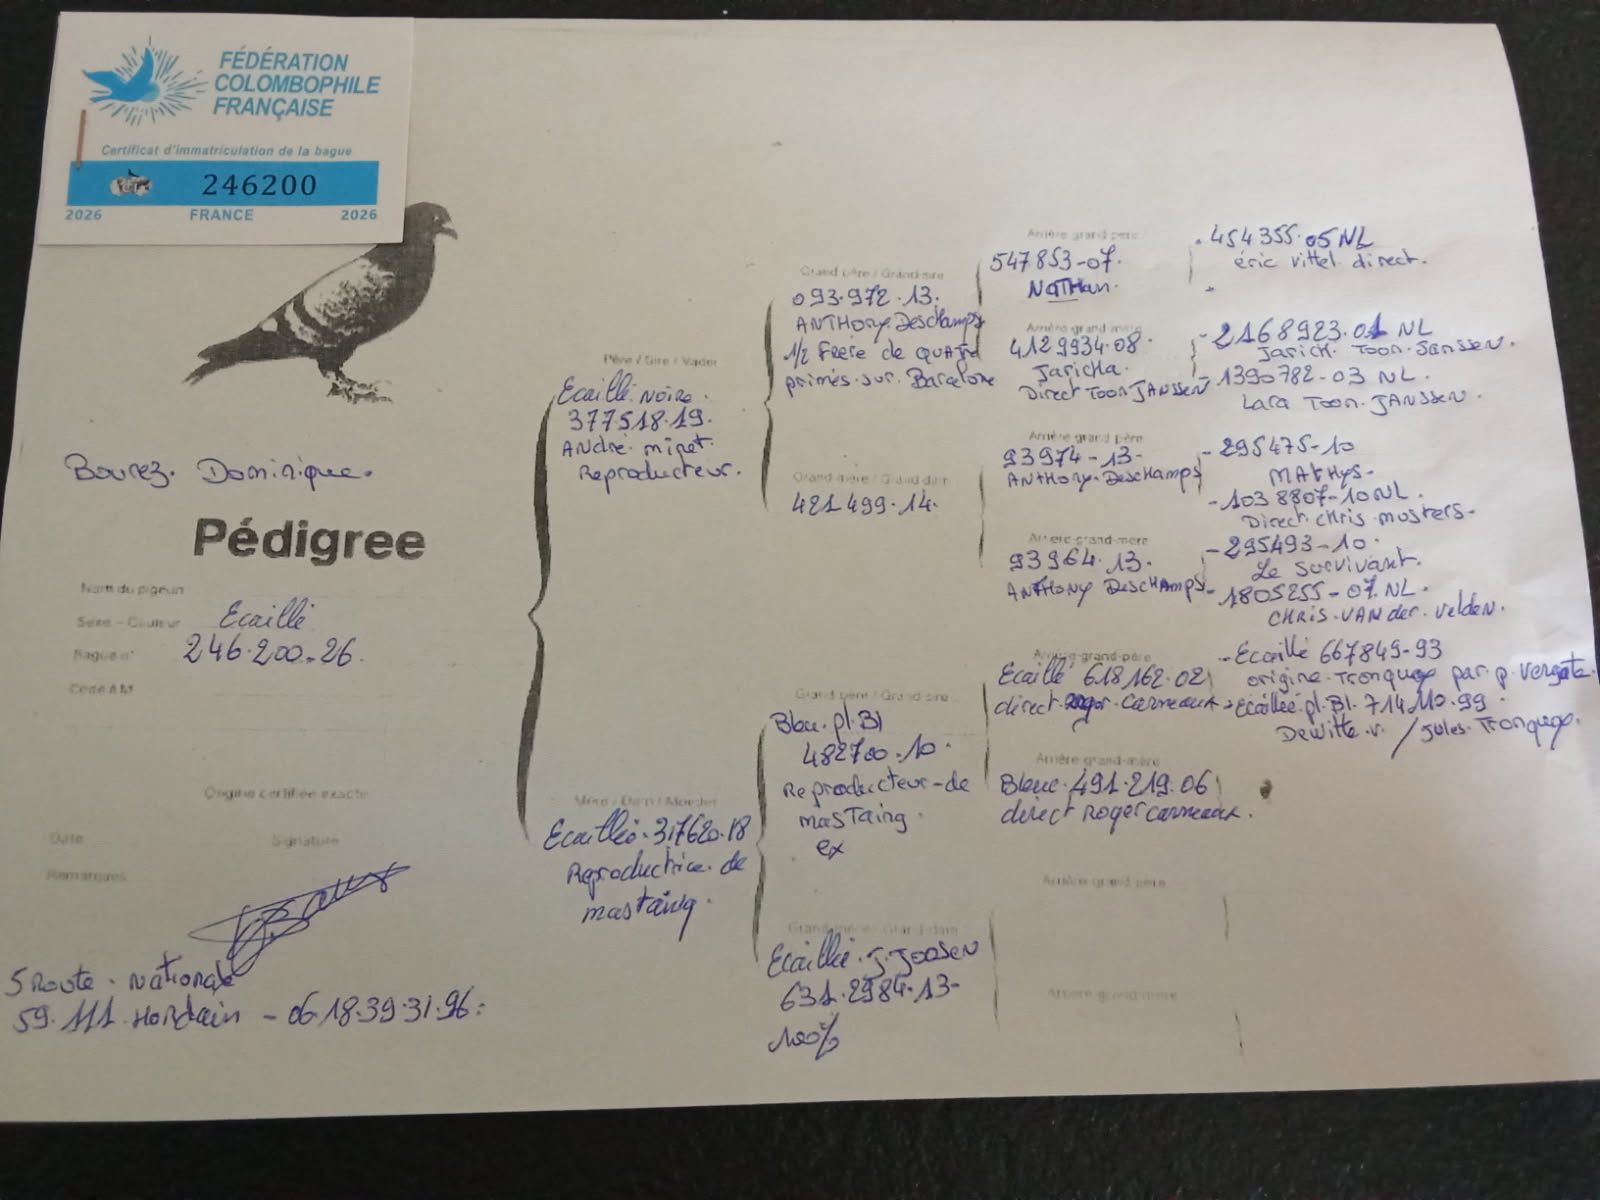 FÉDÉRATION
COLOMBOPHILE
FRANÇAISE
Certificat d'immatriculation de la bague
246200
2026 FRANCE 2026
Bourez. Dominique.
Pédigree
Nom du pigeon
Sexe - Couleur Ecaillé
Bague n° 246.200.26.
Origine certifiée exacte
Date Signature
Remarques
5 Route. Nationale
59.111 Hordain - 06.18.39.31.96.
Père / Sire / Vader
Ecaillé. Noire.
377518.19.
André. minet.
Reproducteur.
Mère / Dam / Moeder
Ecaillée. 317620.18
Reproductrice. de
mastaing.
Grand père / Grand-sire
093.972.13.
ANTHony. Deschamps
1/2 Frère de QUATRE
primés. sur. Barcelone
Grand mère / Grand dam
421499.14.
Grand père / Grand sire
Bleu. pl. Bl
482700.10.
Reproducteur-de
masTaing.
ex
Grand mère / Grand dam
Ecaillée. J. JOOSEN
631.2984.13-
100%
Arrière grand père
547853-07.
NATHan.
Arrière grand mère
4129934.08.
Jaricha.
Direct Toon JANSSEN
Arrière grand père
93974-13-
ANTHony. DescHamps
Arrière-grand-mère
93964.13.
ANTHony DescHAmps
Arrière-grand-père
Ecaillé 618162.02
direct. Roger. Carneaux
Arrière grand-mère
Bleue. 491.219.06
direct Roger carneaux.
Arrière grand père
Arrière-grand-mère
454355.05 NL
éric vittel direct.
- 2168923.01 NL
Jarich. Toon. Janssen.
- 1390782-03 NL.
Lara Toon. JANSSEN.
- 295475-10
MATHYS-
- 1038807-10 NL.
Direct. chris. musters-
- 295493-10.
Le Survivant.
- 1805255-07. NL.
CHRIS. VAN der. Velden.
- Ecaillé 667849-93
origine. Tronquoy par. p. Vergote.
Ecaillée. pl. Bl. 71411099.
Dewitte. v. / Jules. Tronquoy.